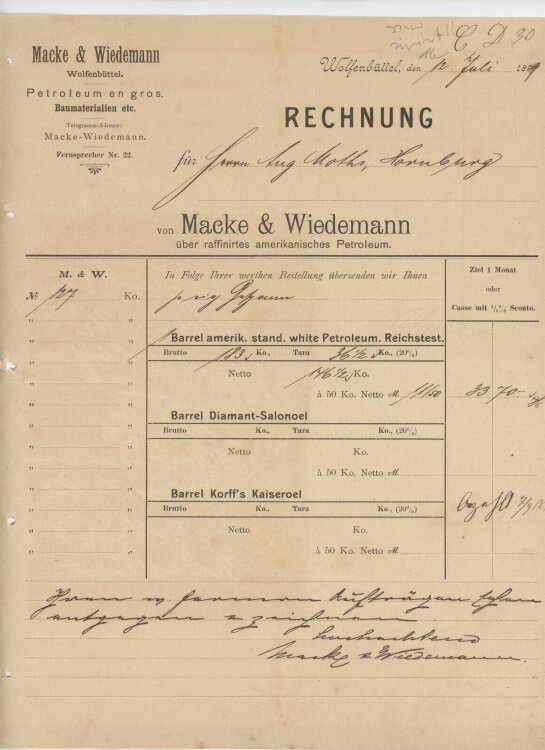 C D 30
Macke & Wiedemann
Wolfenbüttel.
Petroleum en gros,
Baumaterialien etc.
Telegramm-Adresse:
Macke-Wiedemann.
Fernsprecher Nr. 22.
Wolfenbüttel, den 12 Juli 1899
RECHNUNG
für Herrn Aug Moths, Hornburg
von Macke & Wiedemann
über raffinirtes amerikanisches Petroleum.
M. & W.
№ 127 Ko.
In Folge Ihrer werthen Bestellung übersenden wir Ihnen
Ziel 1 Monat
oder
Casse mit % Sconto.
p. eig Gespann
1 Barrel amerik. stand. white Petroleum. Reichstest.
Brutto 183 Ko., Tara 36½ Ko., (20%)
Netto 146½ Ko.
à 50 Ko. Netto M. 11.50 33 70
Barrel Diamant-Salonoel
Brutto Ko., Tara Ko., (20%)
Netto Ko.
à 50 Ko. Netto M.
Barrel Korff's Kaiseroel
Brutto Ko., Tara Ko., (20%)
Netto Ko.
à 50 Ko. Netto M.
Ihren w. fernern Aufträgen sehen
entgegen & zeichnen
hochachtend
Macke & Wiedemann.